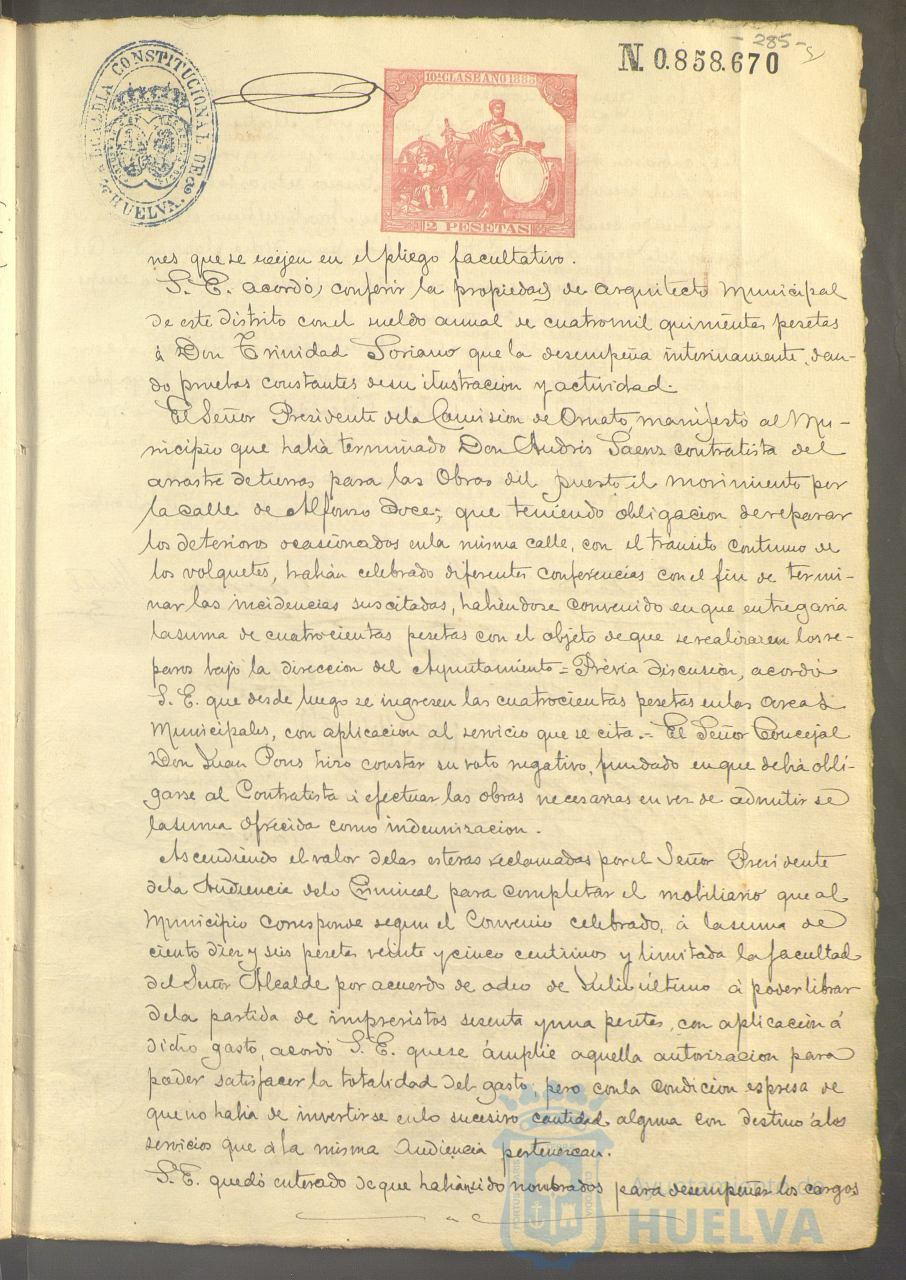 - 285 -
N. 0.858.670
ALCALDIA CONSTITUCIONAL DE
HUELVA.
10ª CLASE AÑO 1885
2 PESETAS
nes que se exijen en el pliego facultativo.
S. E. acordó, conferir la propiedad de arquitecto Municipal
de este distrito con el sueldo anual de cuatro mil quinientas pesetas
á Don Trinidad Soriano que la desempeña interinamente, dan-
do pruebas constantes de su ilustracion y actividad.
El Señor Presidente de la Comision de Ornato, manifestó al Mu-
nicipio que habia terminado Don Andrés Saenz contratista del
arrastre de tierras para las Obras del puerto, el movimiento por
la calle de Alfonso Doce; que teniendo obligacion de reparar
los deterioros ocasionados en la misma calle, con el tránsito continuo de
los volquetes, habian celebrado diferentes conferencias con el fin de termi-
nar las incidencias suscitadas, habiendose convenido en que entregaria
la suma de cuatrocientas pesetas con el objeto de que se realizaren los re-
paros bajo la direccion del Ayuntamiento = Prévia discusion, acordó
S. E. que desde luego se ingresen las cuatrocientas pesetas en las arcas
Municipales, con aplicacion al servicio que se cita. = El Señor Concejal
Don Juan Pons hizo constar su voto negativo, fundado en que debia obli-
garse al Contratista á efectuar las obras necesarias en vez de admitir se
la suma ofrecida como indemnizacion.
Ascendiendo el valor de las esteras reclamadas por el Señor Presidente
de la Audiencia de lo Criminal para completar el mobiliario que al
Municipio corresponde segun el Convenio celebrado, á la suma de
ciento diez y seis pesetas veinte y cinco centimos y limitada la facultad
del Señor Alcalde por acuerdo de de Julio último á poder librar
de la partida de imprevistos sesenta y una pesetas, con aplicacion á
dicho gasto, acordó S. E. que se ámplie aquella autorizacion para
poder satisfacer la totalidad del gasto, pero con la condicion espresa de
que no habia de invertirse en lo sucesivo cantidad alguna con destino á los
servicios que á la misma Audiencia pertenezcan.
S. E. quedó enterado de que habian sido nombrados para desempeñar los cargos
Ayuntamiento de
HUELVA